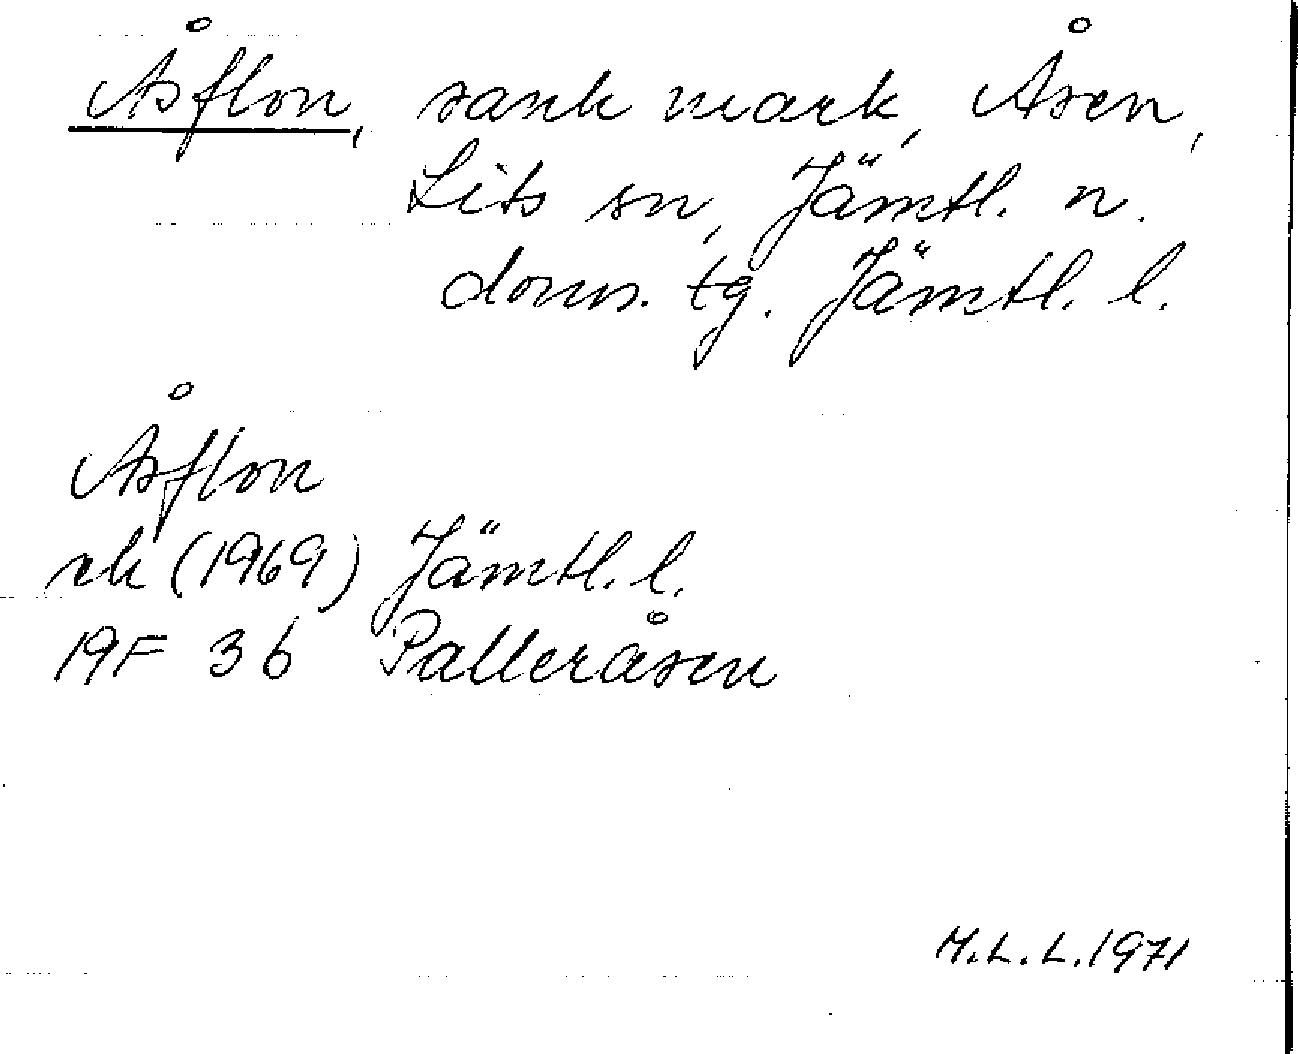 Åsflon, sank mark, Åsen,
Lits sn, Jämtl. n.
doms. tg. Jämtl. l.
Åsflon
rk (1969) Jämtl. l.
19F 3b Palleråsen
M.L.L. 1971